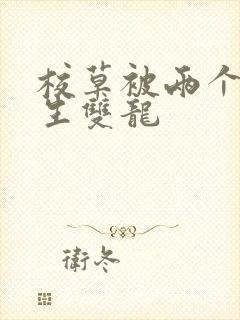 校草被两个
生雙龍
衛冬